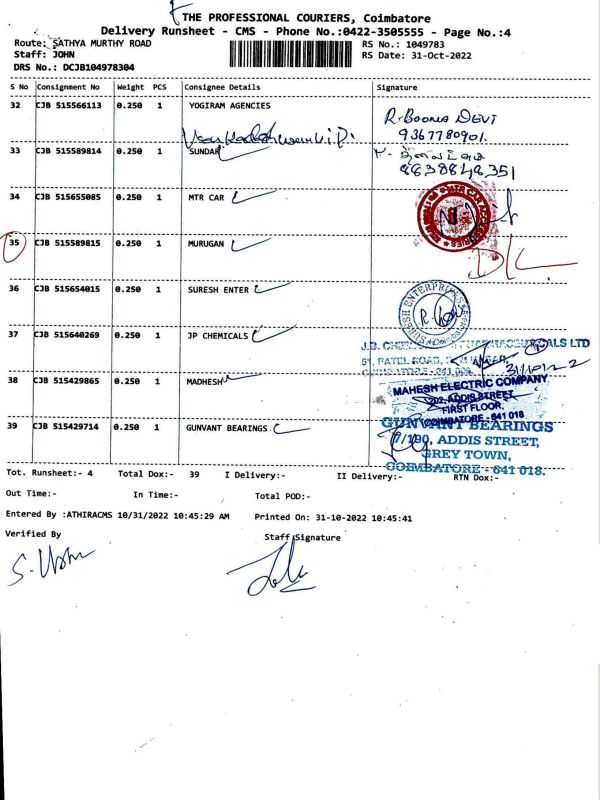 THE PROFESSIONAL COURIERS, Coimbatore
Delivery Runsheet - CMS - Phone No.:0422-3505555 - Page No.:4
Route: SATHYA MURTHY ROAD
Staff: JOHN
DRS No.: DCJB104978304
RS No.: 1049783
RS Date: 31-Oct-2022
S No Consignment No Weight PCS Consignee Details Signature
32 CJB 515566113 0.250 1 YOGIRAM AGENCIES
R. BOOMA DEVI
9367780901.
33 CJB 515589814 0.250 1 SUNDAR
34 CJB 515655085 0.250 1 MTR CAR
35 CJB 515589815 0.250 1 MURUGAN
36 CJB 515654015 0.250 1 SURESH ENTER
SURESH ENTERPRISES
37 CJB 515640269 0.250 1 JP CHEMICALS
61, PATEL ROAD,
COIMBATORE - 641 009.
31/10/22
38 CJB 515429865 0.250 1 MADHESH
MAHESH ELECTRIC COMPANY
202, ADDIS STREET,
FIRST FLOOR,
COIMBATORE - 641 018
39 CJB 515429714 0.250 1 GUNVANT BEARINGS
GUNVANT BEARINGS
7/190, ADDIS STREET,
GREY TOWN,
COIMBATORE - 641 018.
Tot. Runsheet:- 4 Total Dox:- 39 I Delivery:- II Delivery:- RTN Dox:-
Out Time:- In Time:- Total POD:-
Entered By :ATHIRACMS 10/31/2022 10:45:29 AM Printed On: 31-10-2022 10:45:41
Verified By Staff Signature